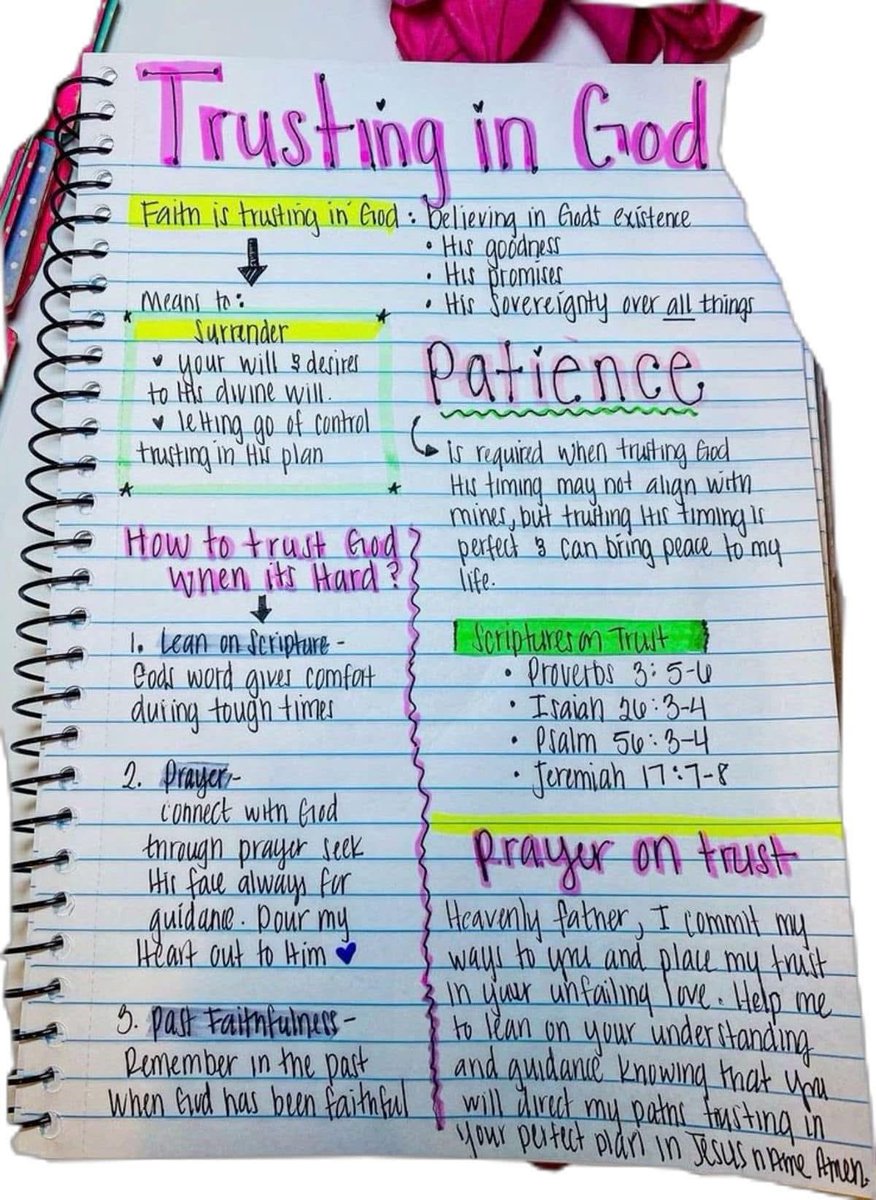 Trusting in God
Faith is trusting in God : believing in Gods existence
• His goodness
• His promises
• His Sovereignty over all things
Means to:
Surrender
♥ your will & desires
to His divine will.
♥ letting go of control
trusting in His plan
Patience
is required when trusting God
His timing may not align with
mines, but trusting His timing is
perfect & can bring peace to my
life.
How to trust God
when its Hard?
1. Lean on Scripture -
Gods word gives comfort
during tough times
2. Prayer -
connect with God
through prayer seek
His face always for
guidance. Pour my
Heart out to Him ♥
3. Past Faithfulness -
Remember in the past
when God has been faithful
Scriptures on Trust
• Proverbs 3:5-6
• Isaiah 26:3-4
• Psalm 56:3-4
• Jeremiah 17:7-8
Prayer on trust
Heavenly father, I commit my
ways to you and place my trust
in your unfailing love. Help me
to lean on your understanding
and guidance knowing that you
will direct my paths trusting in
your perfect plan in Jesus name Amen.